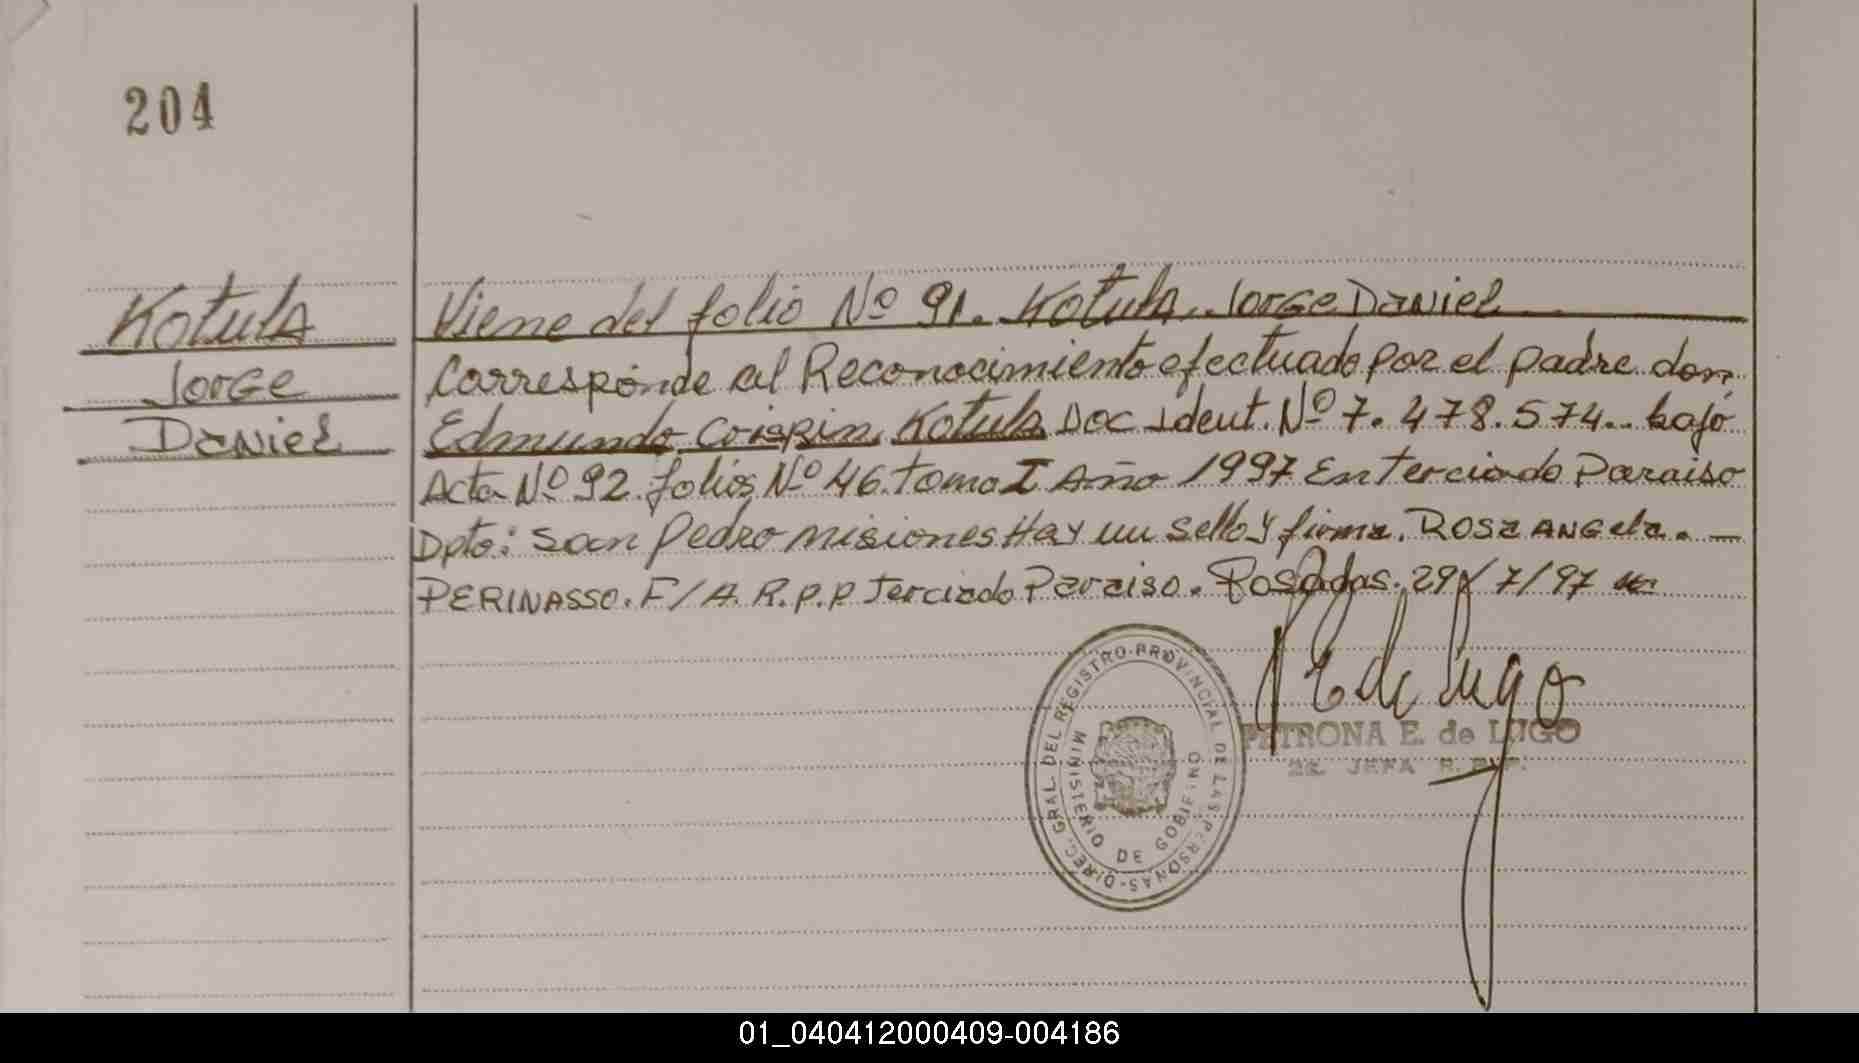 204
Kotula
Jorge
Daniel
Viene del folio Nº 91. Kotula Jorge Daniel
Corresponde al Reconocimiento efectuado por el padre don
Edmundo Crispin Kotula Doc Ident. Nº 7.478.574.. bajo
Acta Nº 92 folios Nº 46 tomo I Año 1997 En terciado Paraiso
Dpto: San Pedro misiones Hay un sello y firma. ROSA ANGela. —
PERINASSO. F/A. R.P.P Terciado Paraiso. Posadas. 29/7/97
P E de Lugo
PETRONA E. de LUGO
2a. JEFA R.P.P.
DIREC. GRAL. DEL REGISTRO PROVINCIAL DE LAS PERSONAS-
MINISTERIO DE GOBIERNO
01_040412000409-004186